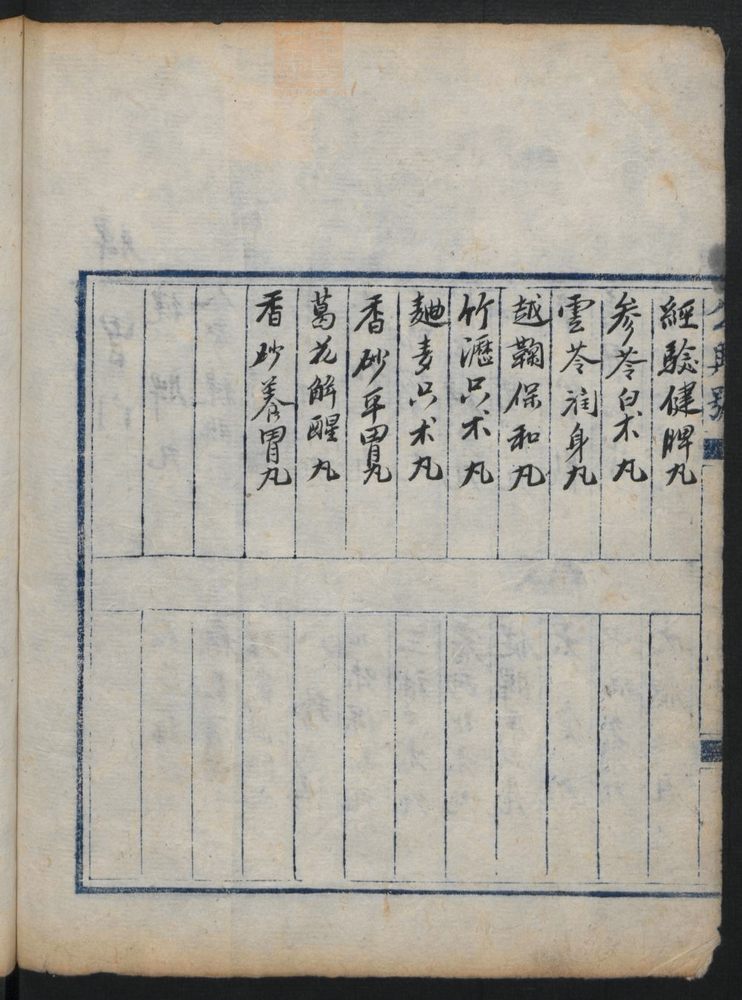 經驗健脾丸
参苓白术丸
雲苓潤身丸
越鞠保和丸
竹瀝只术丸
麯麦只术丸
香砂平胃丸
葛花解醒丸
香砂養胃丸